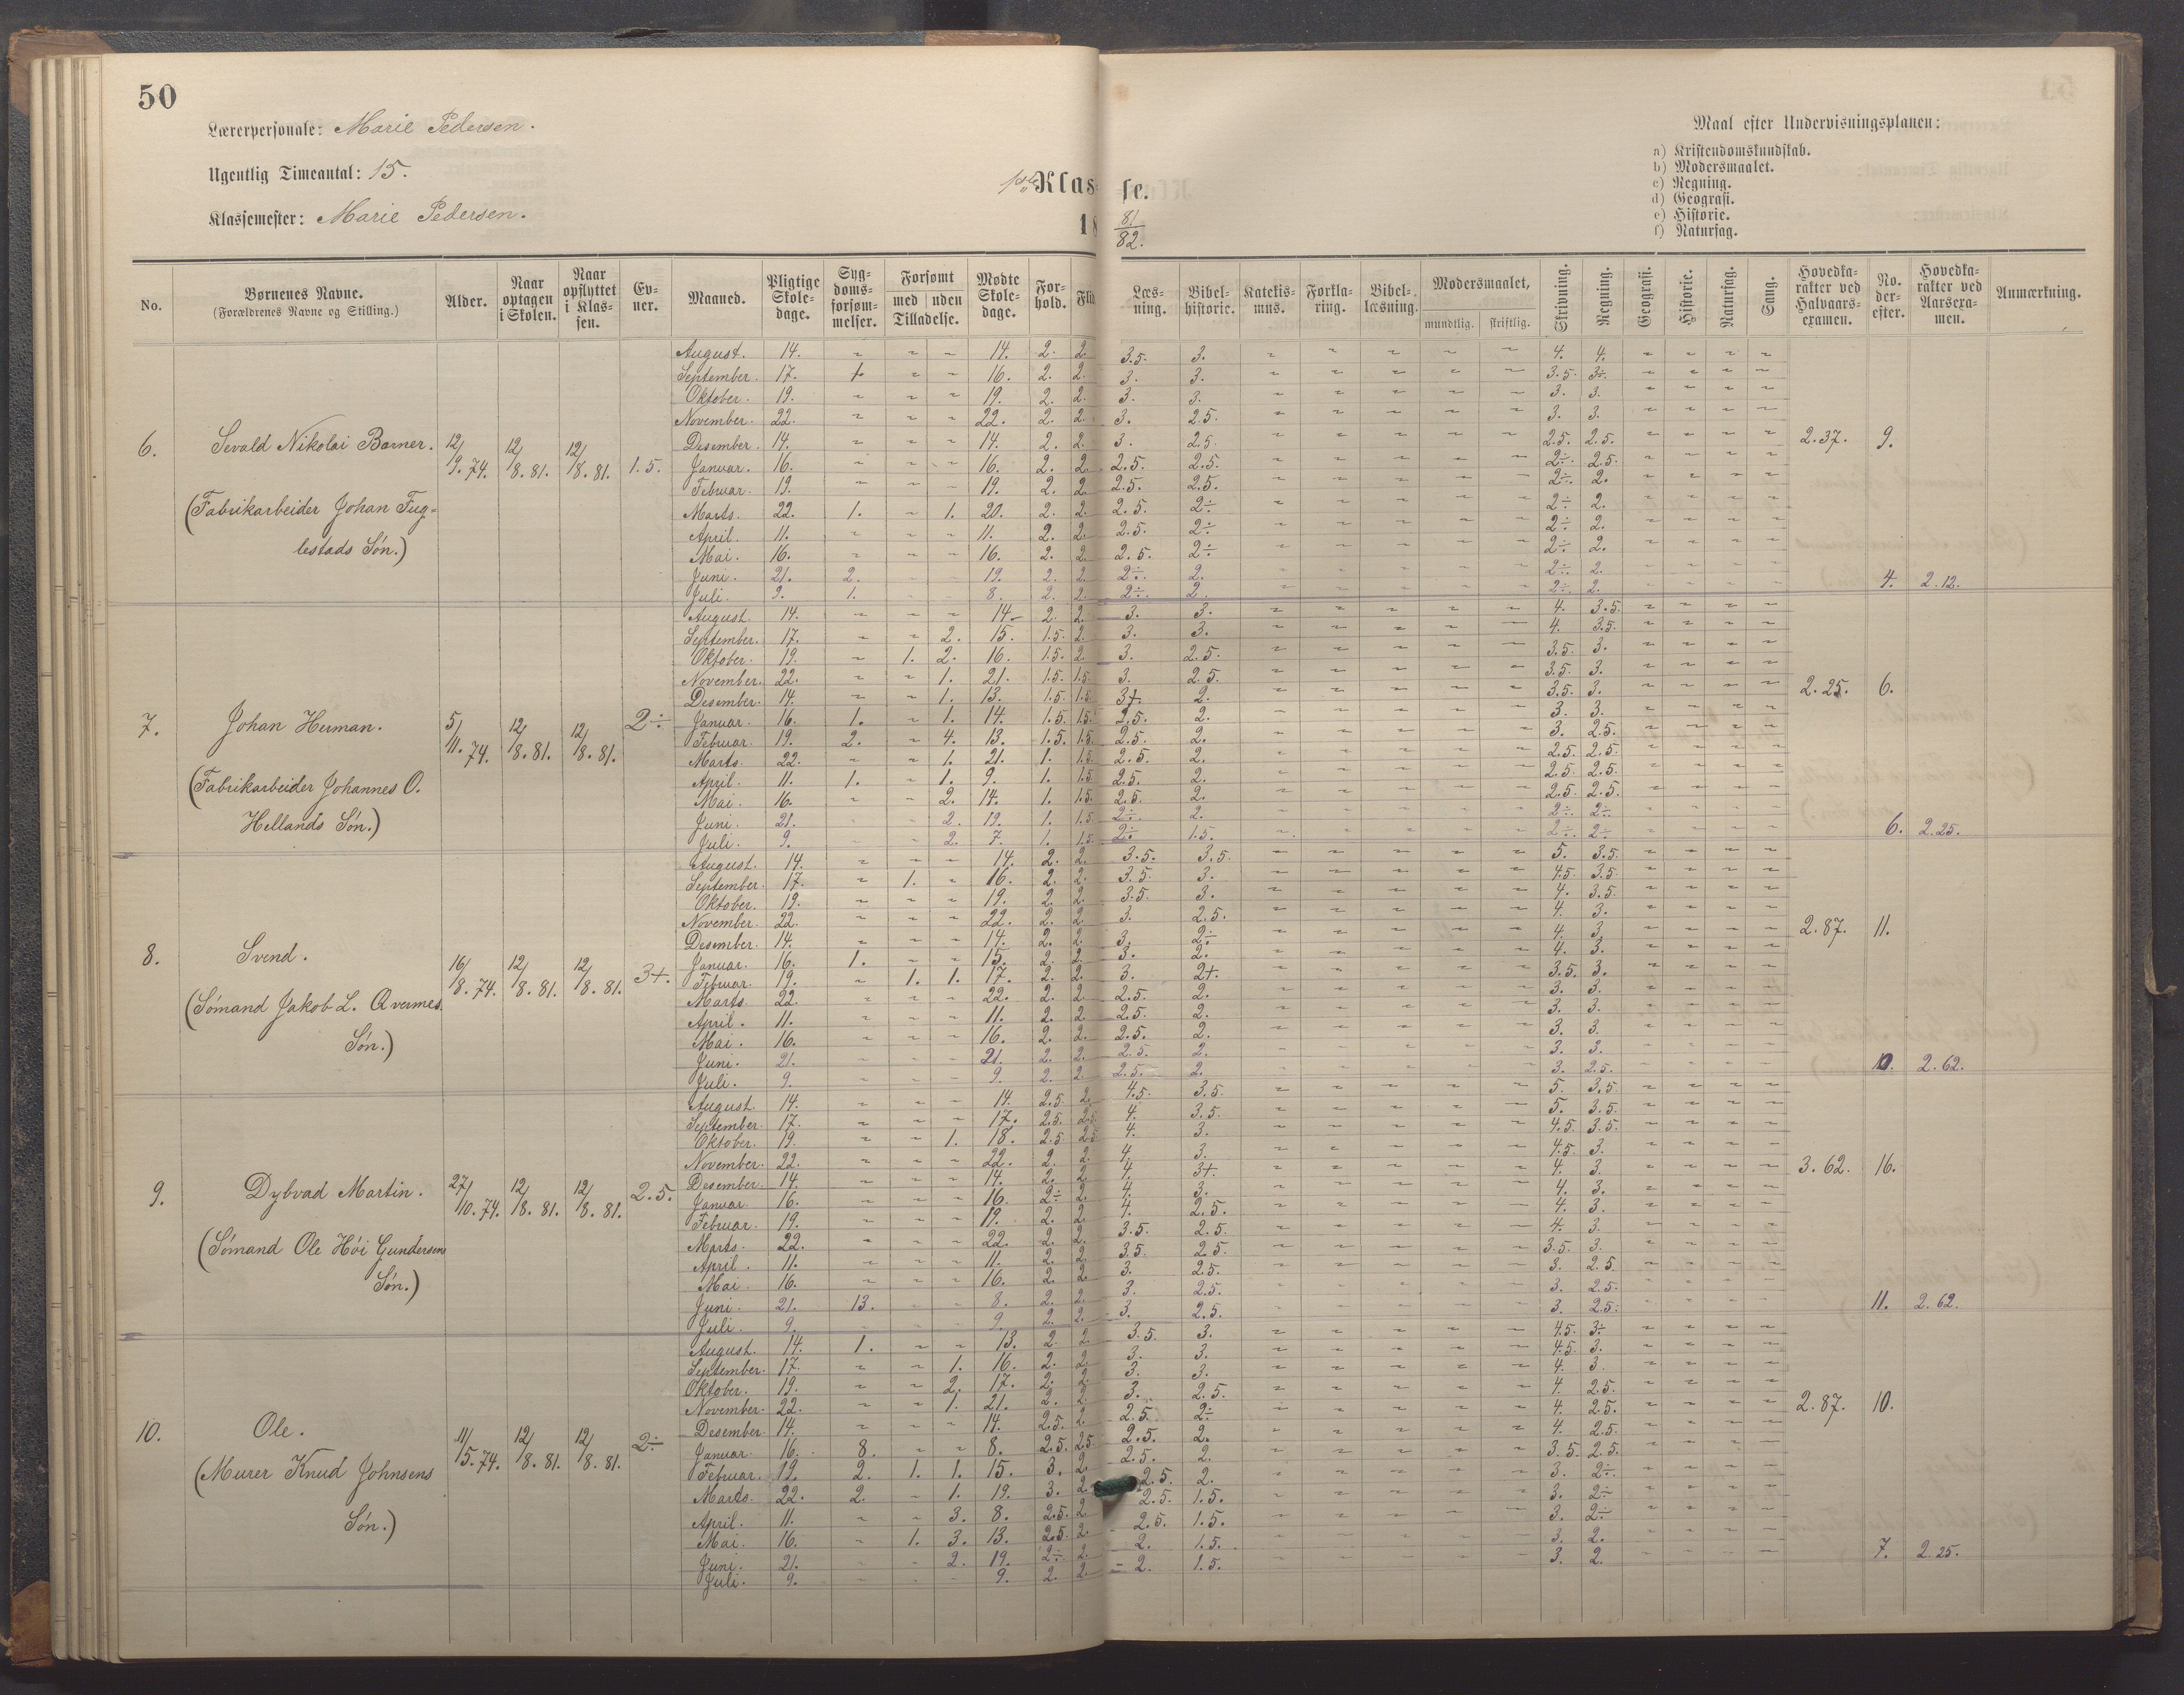 50
Lærerpersonale: Marie Pedersen.
Ugentlig Timeantal: 15.
Klassemester: Marie Pedersen.
1ste Klas=
18
se.
81/82.
Maal efter Undervisningsplanen:
a) Kristendomskundskab.
b) Modersmaalet.
c) Regning.
d) Geografi.
e) Historie.
f) Naturfag.
No.
Børnenes Navne.
(Forældrenes Navne og Stilling.)
Alder.
Naar optagen i Skolen.
Naar opflyttet i Klas=sen.
Ev=ner.
Maaned.
Pligtige Skole=dage.
Syg=doms=forsøm=melser.
Forsømt med uden Tilladelse.
Mødte Skole=dage.
For=hold.
Flid
Læs=ning.
Bibel=historie.
Katekis=mus.
Forkla=ring.
Bibel=læsning.
Modersmaalet, mundtlig. skriftlig.
Skrivning.
Regning.
Geografi.
Historie.
Naturfag.
Sang.
Hovedka=rakter ved Halvaars=examen.
No. der=efter.
Hovedka=rakter ved Aarsexa=men.
Anmærkning.
6. Sevald Nikolai Barner. 12/9. 74. 12/8. 81. 12/8. 81. 1.5.
(Fabrikarbeider Johan Fug=
lestads Søn.)
August. 14. ~ ~ ~ 14. 2. 2. 3.5. 3. 4. 4.
September. 17. ~ ~ 16. 2. 2. 3. 3. 3.5. 3÷.
Oktober. 19. ~ ~ ~ 19. 2. 2. 3. 3. 3. 3.
November. 22. ~ ~ ~ 22. 2. 2. 3. 2.5. 3. 3.
Desember. 14. ~ ~ ~ 14. 2. 2. 3. 2.5. 2.5. 2.5. 2.37. 9.
Januar. 16. ~ ~ ~ 16. 2. 2. 2.5. 2.5. 2÷. 2.5.
Februar. 19. ~ ~ ~ 19. 2. 2. 2.5. 2.5. 2÷. 2.
Marts. 22. 1. ~ 1. 20. 2. 2. 2.5. 2÷ 2÷ 2.
April. 11. ~ ~ ~ 11. 2. 2. 2.5. 2÷ 2÷ 2.
Mai. 16. ~ ~ ~ 16. 2. 2. 2.5. 2÷ 2÷ 2.
Juni. 21. 2. 19. 2. 2. 2÷. 2. 2÷. 2. 4. 2.12.
Juli. 9. 1. 8. 2. 2. 2÷. 2. 2÷. 2.
7. Johan Herman. 5/11. 74. 12/8. 81. 12/8. 81. 2÷
(Fabrikarbeider Johannes O.
Hellands Søn.)
August. 14. ~ ~ ~ 14 2. 2. 3. 3. 4. 3.5.
September. 17. ~ ~ 2. 15. 1.5. 2. 3. 3. 4. 3.5.
Oktober. 19. ~ 1. 2. 16. 1.5. 2. 3. 2.5. 3.5. 3.
November. 22. ~ ~ 1. 21. 1.5. 1.5. 3. 2.5. 3.5. 3.
Desember. 14. ~ ~ 1. 13. 1.5. 1.5. 3+. 2. 3.5. 3. 2.25. 6.
Januar. 16. 1. ~ 1. 14. 1.5. 1.5. 2.5. 2. 3. 3.
Februar. 19. 2. ~ 4. 13. 1.5. 1.5. 2.5. 2. 3. 2.5.
Marts. 22. ~ ~ 1. 21. 1. 1.5. 2.5. 2. 2.5. 2.5.
April. 11. 1. ~ 1. 9. 1. 1.5. 2.5. 2. 2.5. 2.5.
Mai. 16. ~ ~ 2. 14. 1. 1.5. 2.5. 2. 2.5. 2.5.
Juni. 21. 2. 19. 1. 1.5. 2÷. 2. 2÷. 2÷. 6. 2.25.
Juli. 9. 2. 7. 1. 1.5. 2÷. 1.5. 2÷. 2÷
8. Svend. 16/8. 74. 12/8. 81. 12/8. 81. 3+.
(Sømand Jakob L. Qvermes
Søn.)
August. 14. ~ ~ ~ 14. 2. 2. 3.5. 3.5. 5. 3.5.
September. 17. ~ 1. ~ 16. 2. 2. 3.5. 3. 4.5. 3.5.
Oktober. 19. ~ ~ ~ 19. 2. 2. 3.5. 3. 4. 3.5.
November. 22. ~ ~ ~ 22. 2. 2. 3. 2.5. 4. 3.
Desember. 14. ~ ~ ~ 14. 2. 2. 3. 2÷ 4. 3. 2.87. 11.
Januar. 16. 1. ~ ~ 15. 2. 2. 3. 2. 4. 3.
Februar. 19. ~ 1. 1. 17. 2. 2. 3. 2+. 3.5. 3.
Marts. 22. ~ ~ ~ 22. 2. 2. 2.5. 2. 3. 3.
April. 11. ~ ~ ~ 11. 2. 2. 2.5. 2. 3. 3.
Mai. 16. ~ ~ ~ 16. 2. 2. 2.5. 2. 3. 3.
Juni. 21. 21. 2. 2. 2.5. 2. 3. 3. 10. 2.62.
Juli. 9. 9. 2. 2. 2.5. 2. 3. 2.5.
9. Dybvad Martin. 27/10. 74. 12/8. 81. 12/8. 81. 2.5.
(Sømand Ole Høi Gundersens
Søn.)
August. 14. ~ ~ ~ 14. 2.5. 2. 4.5. 3.5. 5. 3.5.
September. 17. ~ ~ ~ 17. 2.5. 2.5. 4. 3.5. 5. 3.5.
Oktober. 19. ~ ~ 1. 18. 2.5. 2.5. 4. 3. 4.5. 3.5.
November. 22. ~ ~ ~ 22. 2. 2. 4. 3. 4.5. 3.
Desember. 14. ~ ~ ~ 14. 2. 2. 4. 3+. 4. 3. 3.62. 16.
Januar. 16. ~ ~ ~ 16. 2÷ 2. 4. 3. 4. 3.
Februar. 19. ~ ~ ~ 19. 2. 2. 4. 2.5. 4. 3.
Marts. 22. ~ ~ ~ 22. 2. 2. 3.5. 2.5. 4. 3.
April. 11. ~ ~ ~ 11. 2. 2. 3.5. 2.5. 3.5. 3.
Mai. 16. ~ ~ ~ 16. 2. 2. 3. 2.5. 3. 2.5.
Juni. 21. 13. 8. 2. 2. 3. 2.5. 3. 2.5. 11. 2.62.
Juli. 9. 9. 2. 2. 3. 2.5. 3. 2.5.
10. Ole. 11/5. 74. 12/8. 81. 12/8. 81. 2÷
(Murer Knud Johnsens
Søn.)
August. 14. 1. ~ ~ 13. 2. 2. 3.5. 3. 4.5. 3÷
September. 17. ~ ~ 1. 16. 2. 2. 3. 3. 4.5. 3.
Oktober. 19. ~ ~ 2. 17. 2. 2. 3. 3. 4. 3.
November. 22. ~ ~ 1. 21. 2. 2. 3. 2.5. 4. 2.5.
Desember. 14. ~ ~ ~ 14. 2.5. 2. 2.5. 2÷ 4. 2.5. 2.87. 10.
Januar. 16. 8. ~ ~ 8. 2.5. 2.5. 2.5. 2. 4. 2.5.
Februar. 19. 2. 1. 1. 15. 3. 2. 2.5. 2. 3.5. 2.5.
Marts. 22. 2. ~ 1. 19. 3. 2. 2.5. 2. 3. 2÷.
April. 11. ~ ~ 3. 8. 2.5. 2. 2.5. 1.5. 3. 2÷
Mai. 16. ~ 1. 3. 13. 2.5. 2. 2.5. 1.5. 3. 2÷
Juni. 21. 2. 19. 2÷. 2. 2. 1.5. 3. 2. 7. 2.25.
Juli. 9. 9. 2. 2. 2. 1.5. 3. 2.